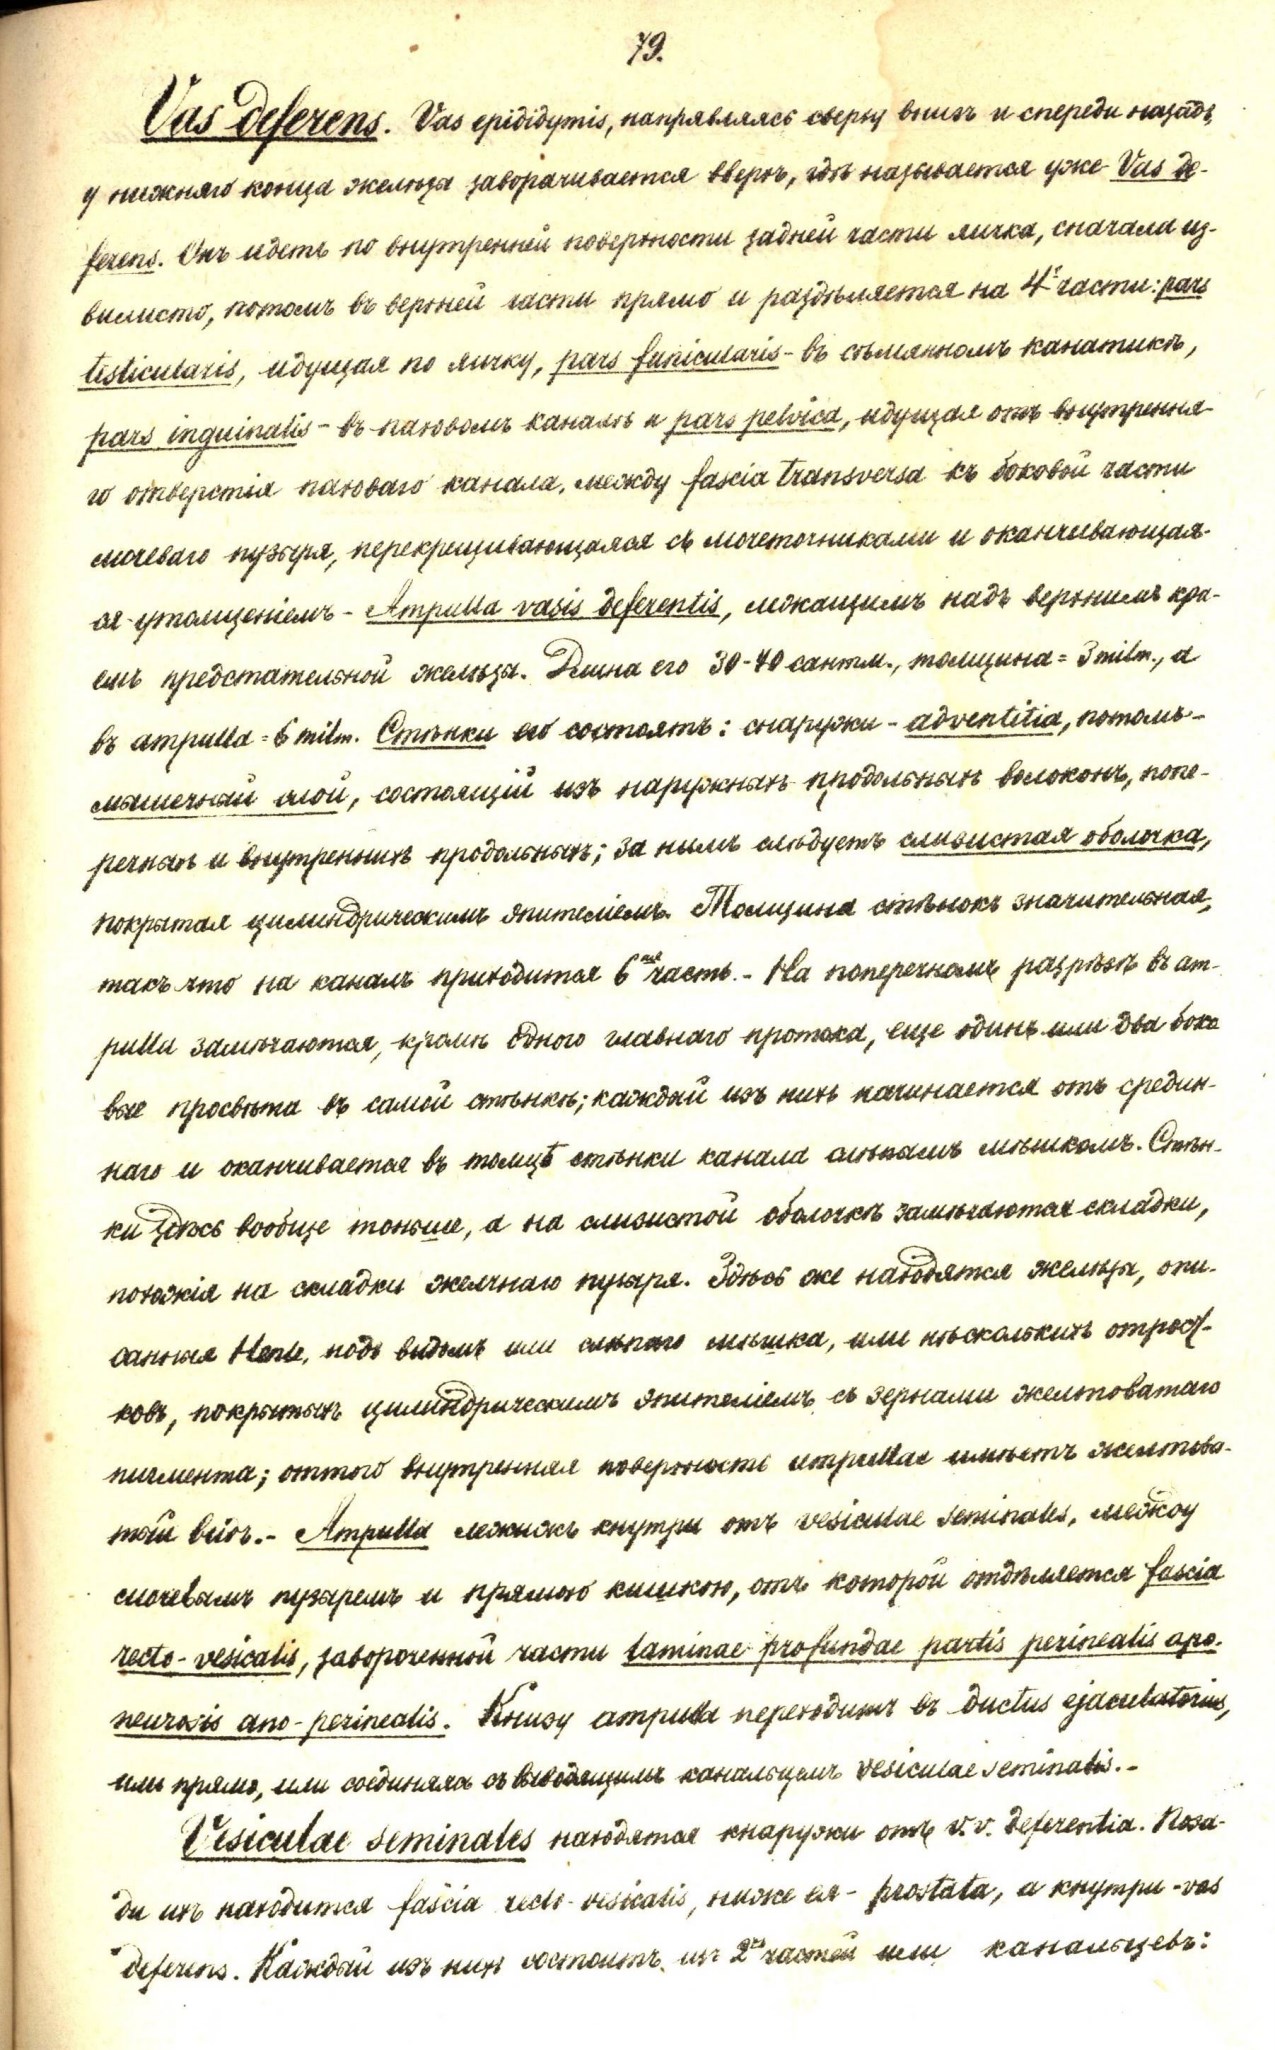 79.
Vas deferens. Vas epididymis, направляясь сверху внизъ и спереди назадъ,
у нижняго конца железы заворачивается вверхъ, гдѣ называется уже Vas de-
ferens. Онъ идетъ по внутренней поверхности задней части яичка, сначала из-
вилисто, потомъ въ верхней части прямо и раздѣляется на 4 части: pars
testicularis, идущая по яичку, pars funicularis - въ сѣмянномъ канатикѣ,
pars inguinalis - въ паховомъ каналѣ и pars pelvica, идущая отъ внутрення-
го отверстія пахового канала, между fascia transversa къ боковой части
мочеваго пузыря, перекрещивающаяся съ мочеточниками и оканчивающая-
ся утолщеніемъ - Ampulla vasis deferentis, лежащимъ надъ верхнимъ кра-
емъ предстательной железы. Длина его 30-40 сантм., толщина = 3 milm., а
въ ampulla = 6 milm. Стѣнки его состоятъ: снаружи - adventitia, потомъ -
мышечный слой, состоящій изъ наружныхъ продольныхъ волоконъ, попе-
речныхъ и внутреннихъ продольныхъ; за нимъ слѣдуетъ слизистая оболочка,
покрытая цилиндрическимъ эпителіемъ. Толщина стѣнокъ значительная,
такъ что на каналъ приходится 6 часть. - На поперечномъ разрѣзѣ въ am-
pulla замѣчаются, кромѣ одного главнаго протока, еще одинъ или два боко
вые просвѣта въ самой стѣнкѣ; каждый изъ нихъ начинается отъ средин-
наго и оканчивается въ толщѣ стѣнки канала слѣпымъ мѣшкомъ. Стѣн-
ки здѣсь вообще тоньше, а на слизистой оболочкѣ замѣчаются складки,
похожія на складки желчнаго пузыря. Здѣсь же находятся железы, опи-
санныя Henle, подъ видомъ или слѣпого мѣшка, или нѣсколькихъ отрост-
ковъ, покрытыхъ цилиндрическимъ эпителіемъ съ зернами желтоватаго
пигмента; оттого внутренняя поверхность ampullae имѣетъ желтова-
тый видъ. - Ampulla лежитъ кнутри отъ vesiculae seminales, между
мочевымъ пузыремъ и прямою кишкою, отъ которой отдѣляется fascia
recto-vesicalis, завороченной части laminae profundae partis perinealis apo-
neurosis ano-perinealis. Книзу ampulla переходитъ въ ductus ejaculatorius,
или прямо, или соединяясь съ выводящимъ канальцемъ vesiculae seminalis. -
Vesiculae seminales находятся кнаружи отъ v.v. deferentia. Поза-
ди ихъ находится fascia recto-vesicalis, ниже ея - prostata, а кнутри - vas
deferens. Каждый изъ нихъ состоитъ изъ 2хъ частей или канальцевъ: